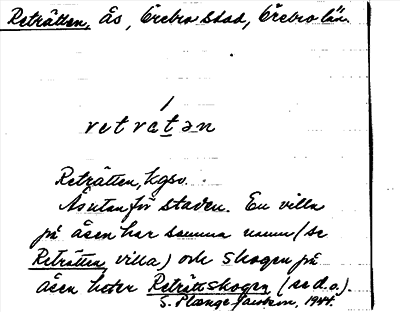 Reträtten, ås, Örebro stad, Örebro län.
retrạtən
Reträtten, kgso.
Ås utanför staden. En villa
på åsen har samma namn (se
Reträtten, villa) och skogen på
åsen heter Reträttskogen (se d.o.).
S. Plænge Jacobson, 1944.